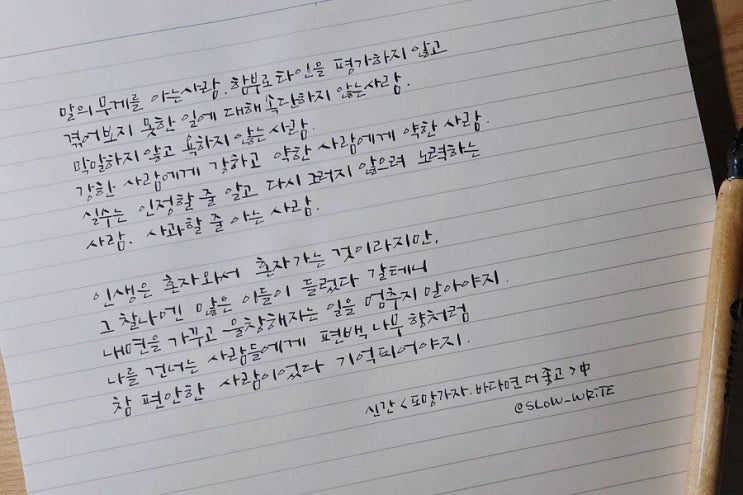 말의 무게를 아는사람. 함부로 타인을 평가하지 않고
겪어보지 못한 일에 대해 속단하지 않는사람.
막말하지 않고 욕하지 않는 사람.
강한 사람에게 강하고 약한 사람에게 약한 사람.
실수는 인정할 줄 알고 다시 그러지 않으려 노력하는
사람. 사과할 줄 아는 사람.
인생은 혼자와서 혼자가는 것이라지만,
그 찰나엔 많은 이들이 들렀다 갈테니
내면을 가꾸고 울창해지는 일을 멈추지 말아야지.
나를 건너는 사람들에게 편백 나무 향처럼
참 편안한 사람이었다 기억되어야지.
신간 <도망가자. 바다면 더 좋고> 中
@SLOW_WRiTE